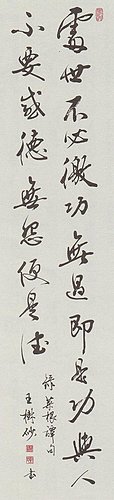 處世不必徼功無過即是功與人
不要感德無怨便是德
錄菜根譚句
王樹